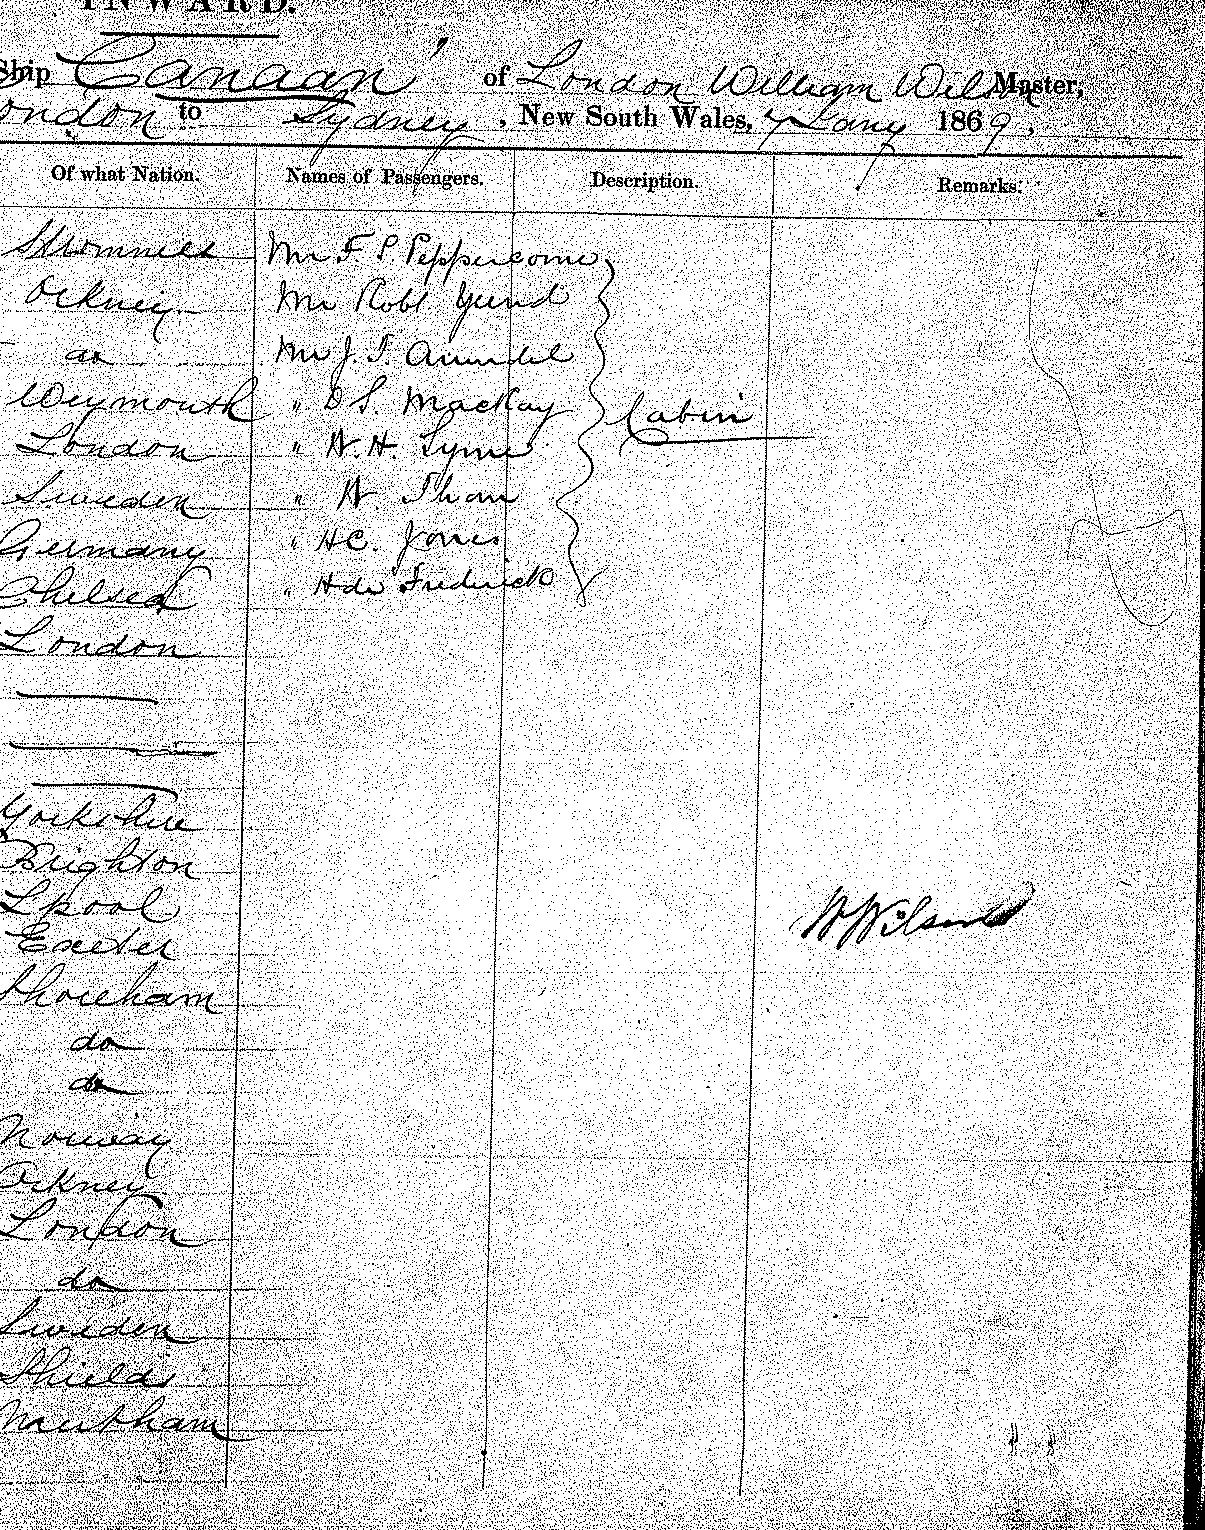 INWARD.
Ship Canaan of London William Wilson Master,
London to Sydney, New South Wales, 7 Jany 1869,
Of what Nation. Names of Passengers. Description. Remarks.
Stromness Mr F. S. Peppercorne
Orkney Mr Robt
do Mr J. T. Arundel
Weymouth " D S. Mackay Cabin
London " W. H. Syme
Sweden " W Thom
Germany " H C. Jones
Chelsea " Frederick
London
Yorkshire
Brighton
Lpool
W Wilson
Exeter
Shoreham
do
do
Norway
Orkney
London
do
Sweden
Shields